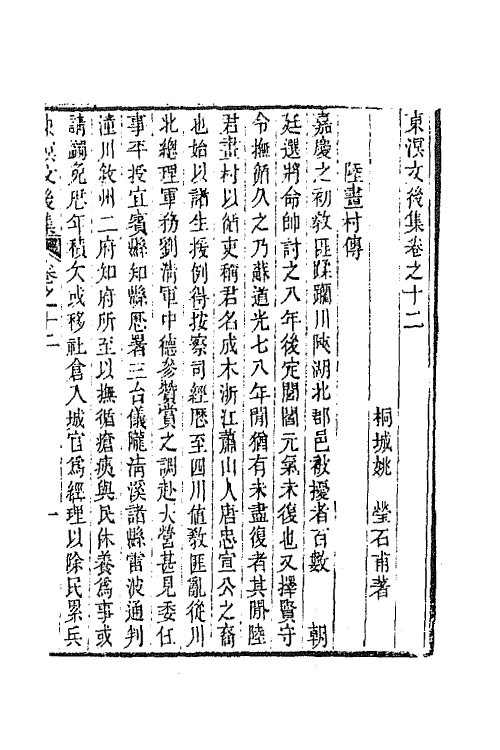 東溟文後集卷之十二
桐城姚　瑩石甫著
陸畫村傳
嘉慶之初敎匪蹂躪川陝湖北郡邑被擾者百數　朝
廷選將命帥討之八年後定閭閻元氣未復也又擇賢守
令撫循久之乃蘇道光七八年閒猶有未盡復者其閒陸
君畫村以循吏稱君名成木浙江蕭山人唐忠宣公之裔
也始以諸生援例得按察司經歷至四川值敎匪亂從川
北總理軍務劉淸軍中德參贊賞之調赴大營甚見委任
事平授宜賓縣知縣歷署三台儀隴淸溪諸縣雷波通判
潼川敘州二府知府所至以撫循瘡痍與民休養爲事或
請蠲免歷年積欠或移社倉入城官爲經理以除民累兵
東溟文後集　卷之十二　一